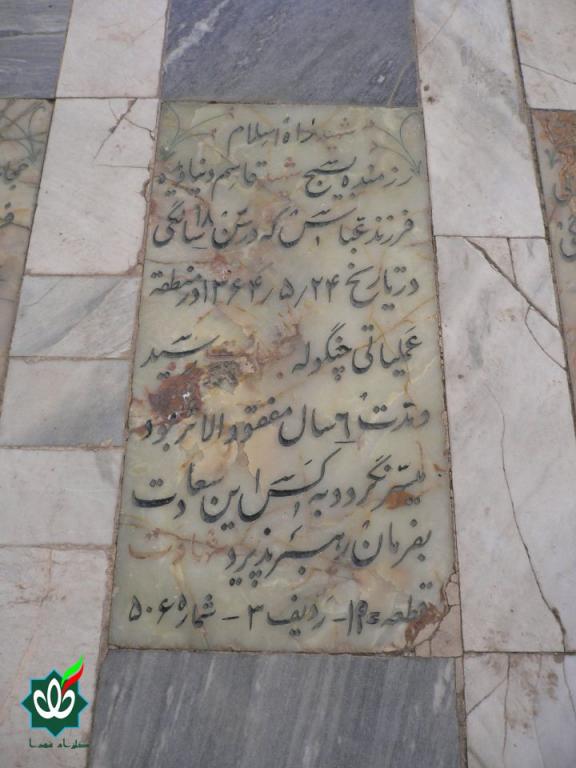 شهید راه اسلام
رزمنده بسیج شهید قاسم دنیادیده
فرزند عباس که در سن ۱۸ سالگی
در تاریخ ۱۳۶۴/۵/۲۴ در منطقه
عملیاتی چنگوله رسید
و مدت ۶ سال مفقودالاثر بود
میسر نگردد به کس این سعادت
بفرمان رهبر پذیرد شهادت
قطعه ۱۹ - ردیف ۳ - شماره ۵۰۶